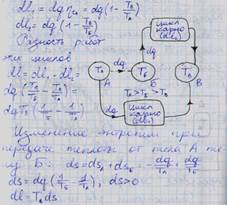 dl₁ = dq η_c₁ = dq(1 - T₀/T_A)
dl₂ = dq(1 - T₀/T_Б)
Разность работ
этих циклов
dl = dl₁ - dl₂ =
dq(T₀/T_Б - T₀/T_A) =
dq T₀(1/T_Б - 1/T_A)
Цикл
Карно
(dl₂)
dq
dq
T_A
T_Б
T₀
А
Б
В
T_A > T_Б > T₀
dq
Цикл
Карно
(dl₁)
Изменение энтропии при
передаче теплоты от тела А те
лу Б: ds = ds_A + ds_Б = -dq/T_A + dq/T_Б
ds = dq(1/T_Б - 1/T_A), ds > 0
dl = T₀ds